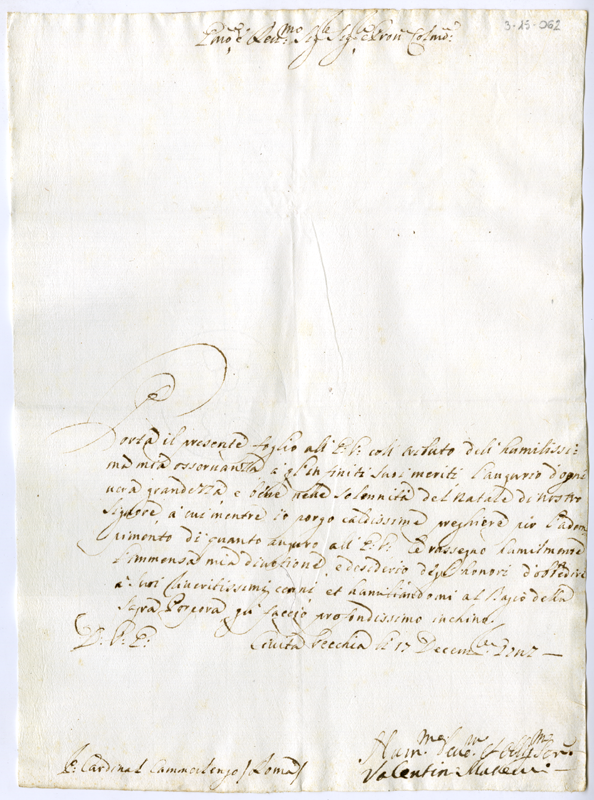 3-15-062
Em.o e Rev.mo Sig.re Sig.re e Pron. Colmo.
Porta il presente foglio all' E. V. coll' atto dell' humilissi-
ma mia osservanza a gl' infiniti suoi meriti l'augurio d'ogni
vera grandezza e bene nelle solennità del Natale di Nostro
Signore, a cui mentre io porgo caldissime preghiere per l'adem-
pimento di quanto auguro all' E. V. le rassegno humilmente
l'immensa mia divotione, e desiderio degl' honori d'obbedire
a' suoi riveritissimi cenni et humiliandomi al bacio della
Sacra Porpora qui faccio profondissimo inchino.
D. V. E. Civita Vecchia li 17 Decem.
E. Cardinal Camerlengo / Roma /
Hum.mo Dev.mo et Obblig.mo Ser.
Valentin